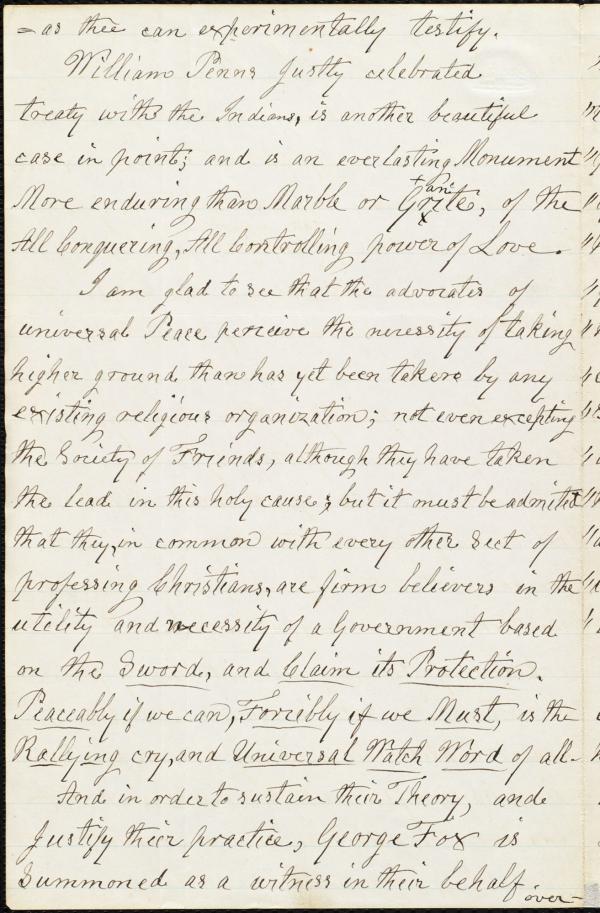 - as thee can experimentally testify.
William Penns justly celebrated
treaty with the Indians, is another beautiful
case in point; and is an everlasting Monument
More enduring than Marble or Granite, of the
All Conquering, All Controlling power of Love.
I am glad to see that the advocates of
universal Peace perceive the necessity of taking
higher ground than has yet been taken by any
existing religious organization; not even excepting
the Society of Friends, although they have taken
the lead in this holy cause; but it must be admitted
that they, in common with every other Sect of
professing Christians, are firm believers in the
utility and necessity of a Government based
on the Sword, and Claim its Protection.
Peaceably if we can, Forcibly if we Must, is the
Rallying cry, and Universal Watch Word of all-
And in order to sustain their Theory, and
Justify their practice, George Fox is
Summoned as a witness in their behalf
over-